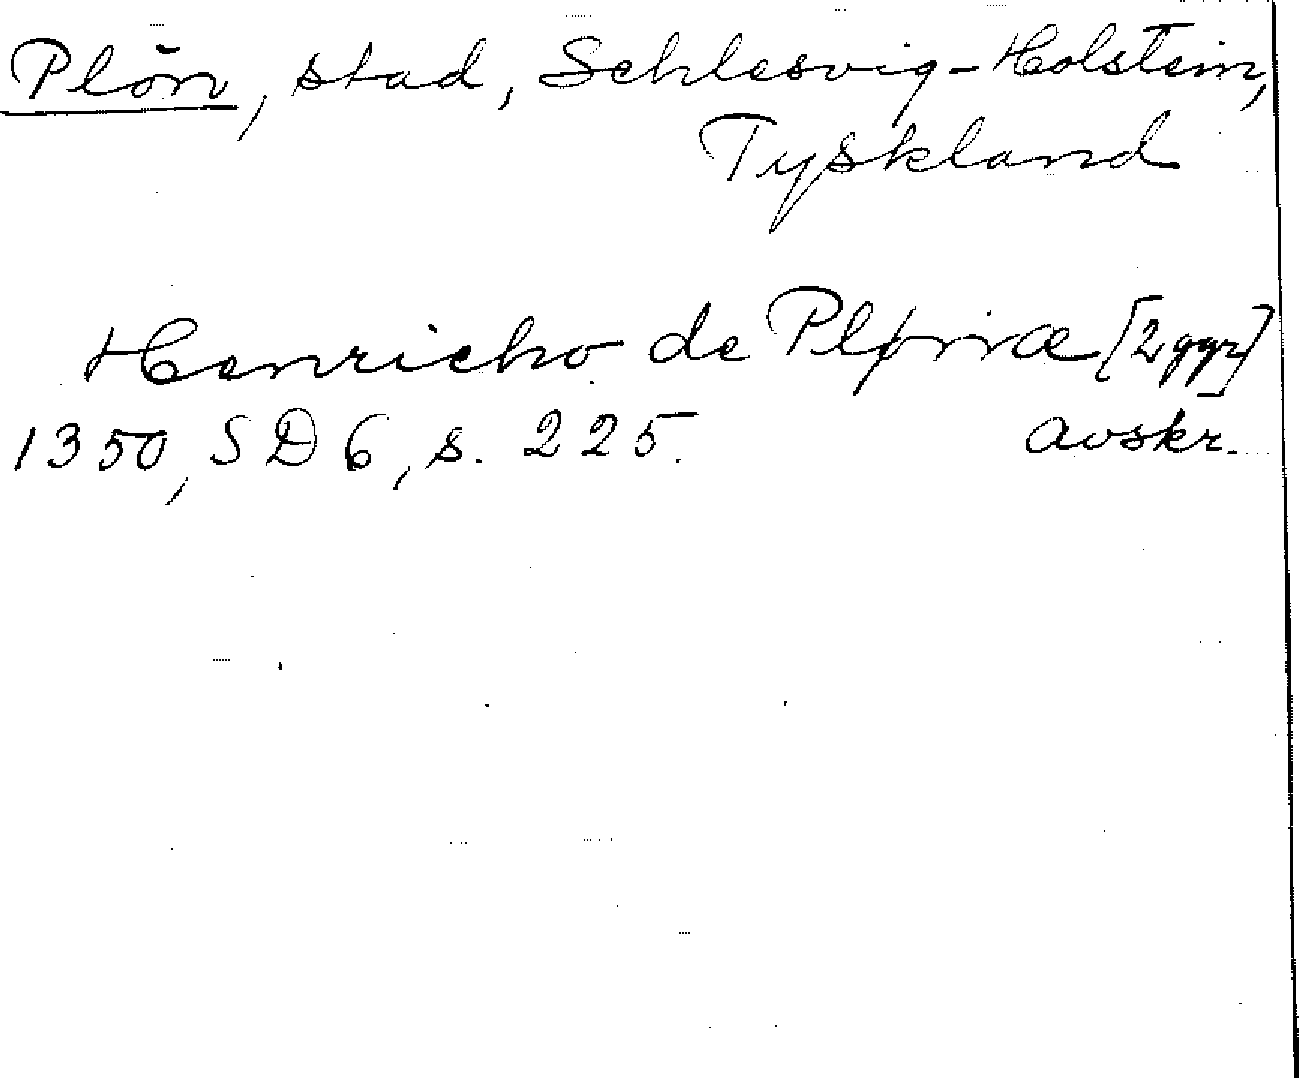 Plön, stad, Schlesvig-Holstein,
Tyskland
Henricho de Pløniæ [2 ggr]
1350, SD 6, s. 225. avskr.